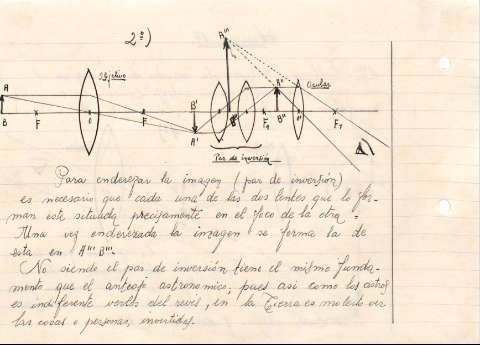 2º)
A'''
Objetivo
Ocular
A
B'
A''
B F F A' B''' F₁ B'' F₁
Par de inversión
Para enderezar la imagen (par de inversión)
es necesario que cada una de las dos lentes que lo for-
man este situada precisamente en el foco de la otra =
Una vez enderezada la imagen se forma la de
esta en A''' B'''.
No siendo el par de inversión tiene el mismo funda-
mento que el anteojo astronomico, pues asi como los astros
es indiferente verlos del revés, en la Tierra es molesto ver
las cosas o personas invertidas.